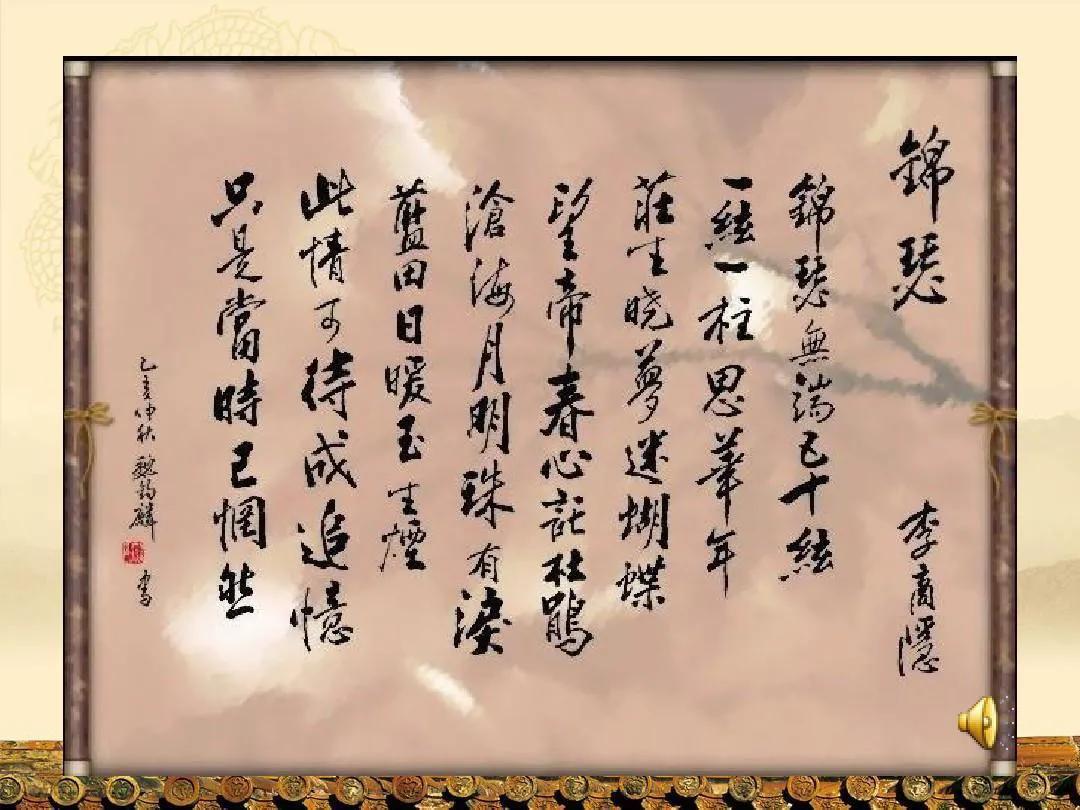 錦瑟
李商隱
錦瑟無端五十絃
一絃一柱思華年
莊生晓夢迷蝴蝶
望帝春心託杜鵑
滄海月明珠有淚
藍田日暖玉生煙
此情可待成追憶
只是當時已惘然
乙亥仲秋魏韵麟
書